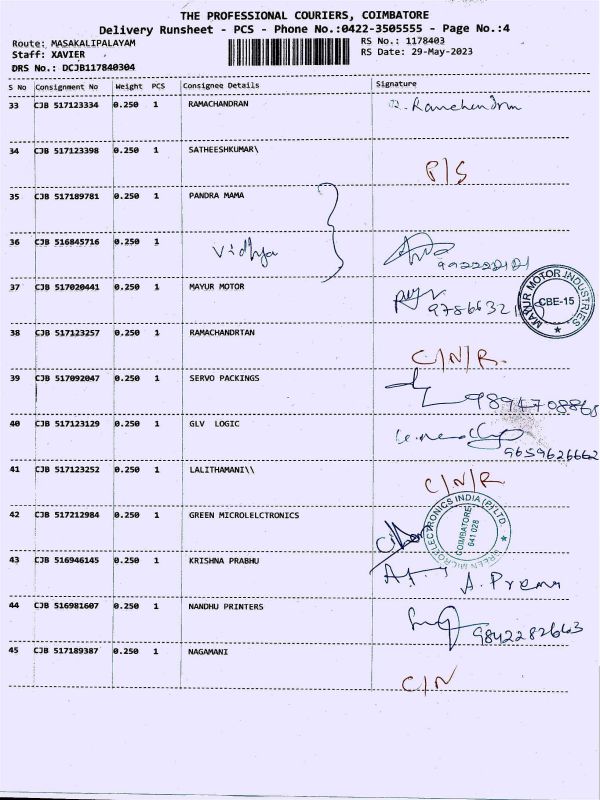 THE PROFESSIONAL COURIERS, COIMBATORE
Delivery Runsheet - PCS - Phone No.:0422-3505555 - Page No.:4
Route: MASAKALIPALAYAM
RS No.: 1178403
Staff: XAVIER
RS Date: 29-May-2023
DRS No.: DCJB117840304
S No Consignment No Weight PCS Consignee Details Signature
33 CJB 517123334 0.250 1 RAMACHANDRAN R. Ramchendrm
34 CJB 517123398 0.250 1 SATHEESHKUMAR\
P/S
35 CJB 517189781 0.250 1 PANDRA MAMA
36 CJB 516845716 0.250 1
Vidhya
37 CJB 517020441 0.250 1 MAYUR MOTOR
MAYUR MOTOR INDUSTRIES
CBE-15
38 CJB 517123257 0.250 1 RAMACHANDRTAN
C/N/R.
39 CJB 517092047 0.250 1 SERVO PACKINGS
9894708865
40 CJB 517123129 0.250 1 GLV LOGIC
9659626662
41 CJB 517123252 0.250 1 LALITHAMANI\\
C/N/R
42 CJB 517212984 0.250 1 GREEN MICROLELCTRONICS
GREEN MICROELECTRONICS INDIA (P) LTD
COIMBATORE
641 028
43 CJB 516946145 0.250 1 KRISHNA PRABHU
A. Prema
44 CJB 516981607 0.250 1 NANDHU PRINTERS
9842282663
45 CJB 517189387 0.250 1 NAGAMANI
C/N